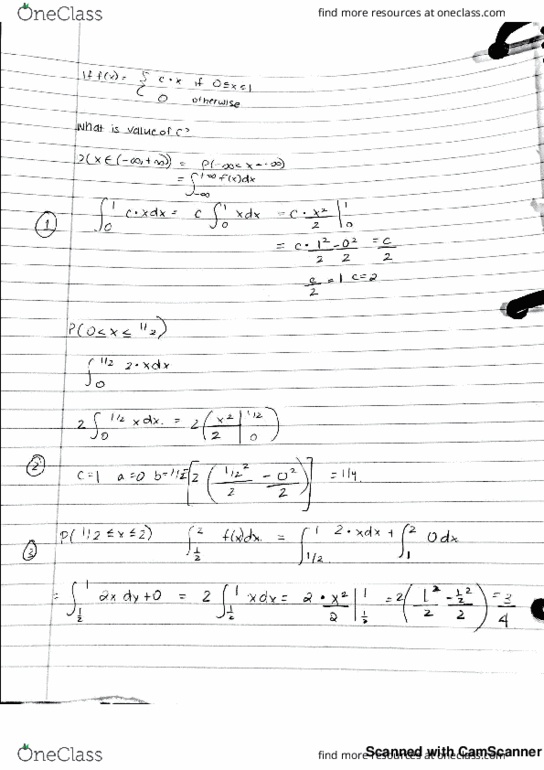 OneClass find more resources at oneclass.com
If f(x) = { c•x if 0≤x≤1
0 otherwise
What is value of c?
(x ∈ (-∞, +∞)) = P(-∞ < x < ∞)
= ∫_{-∞}^{+∞} f(x)dx
① ∫_0^1 c•xdx = c ∫_0^1 xdx = c • x²/2 |_0^1
= c • 1²/2 - 0²/2 = c/2
c/2 = 1 c=2
P(0 ≤ x ≤ 1/2)
∫_0^{1/2} 2•xdx
2 ∫_0^{1/2} xdx. = 2 (x²/2 |_0^{1/2})
② c=1 a=0 b=1/2 [2 (1/2²/2 - 0²/2)] = 1/4
③ P(1/2 ≤ x ≤ 2) ∫_{1/2}^2 f(x)dx. = ∫_{1/2}^1 2•xdx + ∫_1^2 0dx
= ∫_{1/2}^1 2x dy + 0 = 2 ∫_{1/2}^1 xdx = 2 • x²/2 |_{1/2}^1 = 2 (1²/2 - 1/2²/2) = 3/4
Scanned with CamScanner
OneClass find more resources at oneclass.com